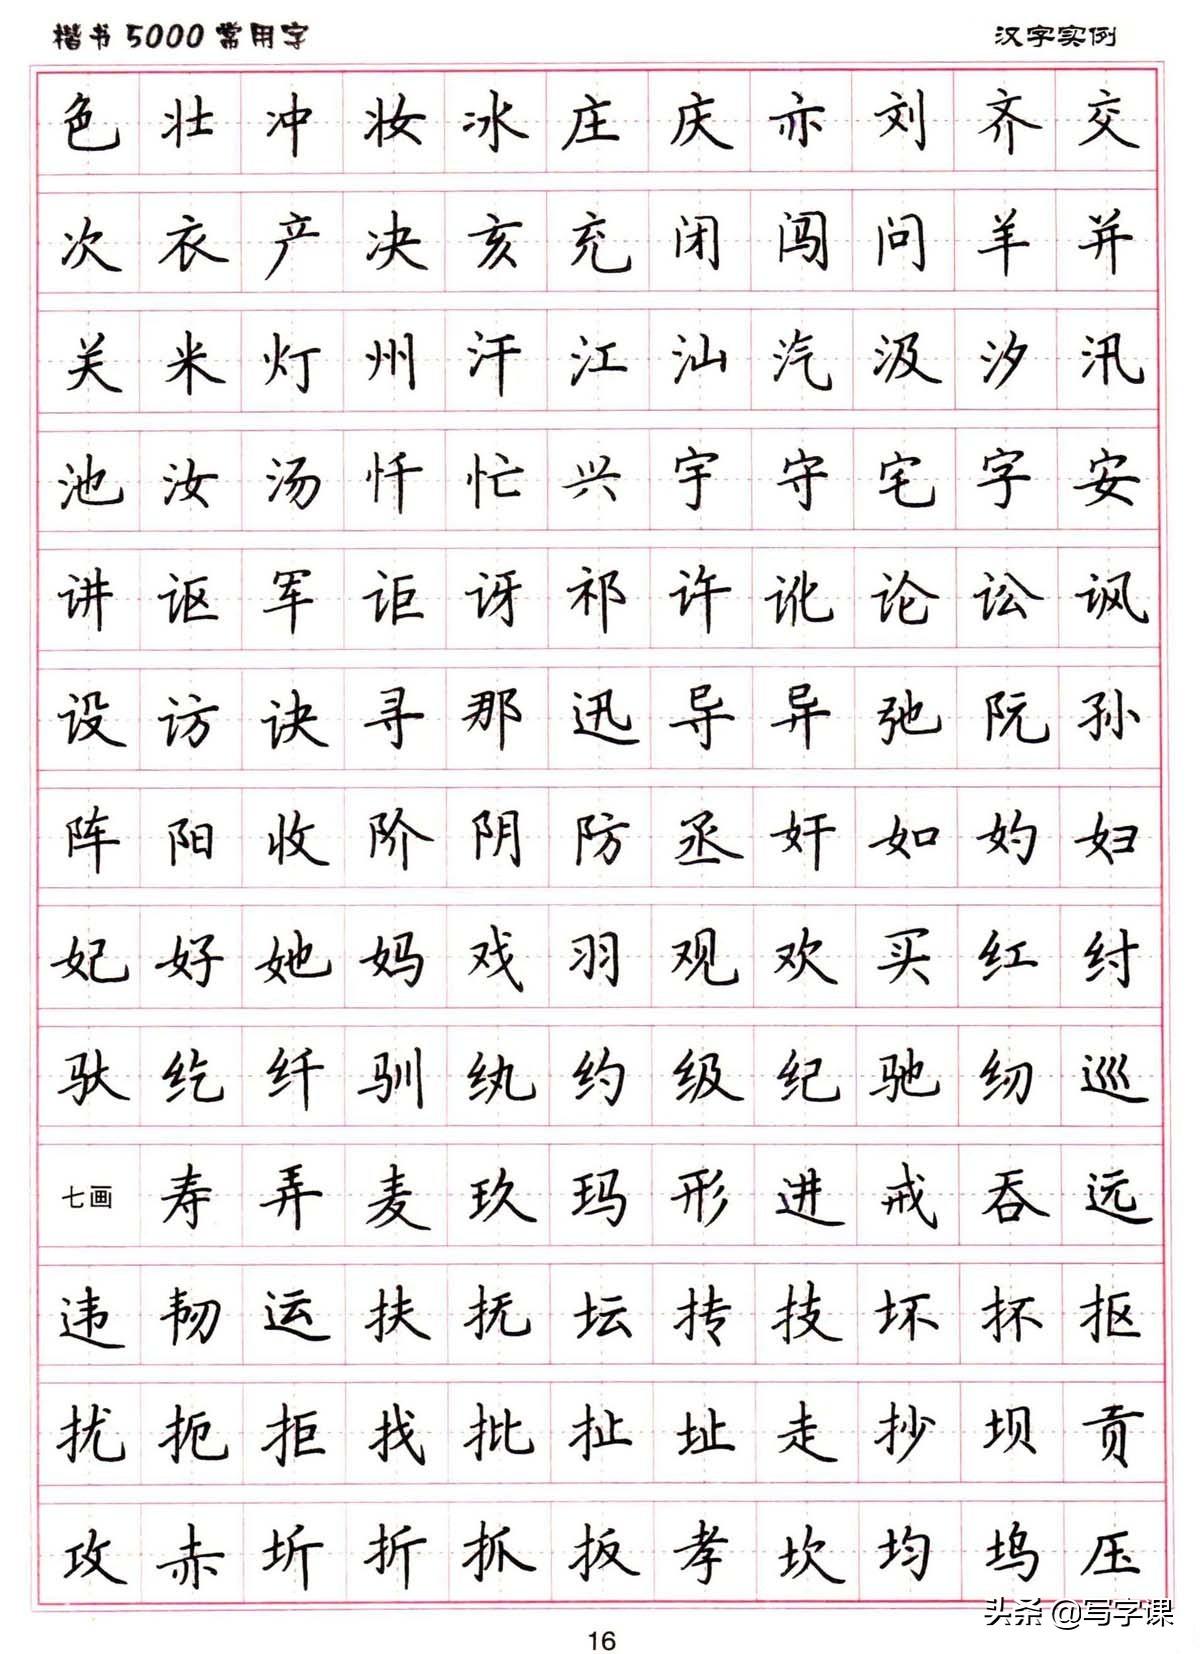 楷书5000常用字 汉字实例
色 壮 冲 妆 冰 庄 庆 亦 刘 齐 交
次 衣 产 决 亥 充 闭 闯 问 羊 并
关 米 灯 州 汗 江 汕 汽 汲 汐 汛
池 汝 汤 忏 忙 兴 宇 守 宅 字 安
讲 讴 军 讵 讶 祁 许 讹 论 讼 讽
设 访 诀 寻 那 迅 导 异 弛 阮 孙
阵 阳 收 阶 阴 防 丞 奸 如 妁 妇
妃 好 她 妈 戏 羽 观 欢 买 红 纣
驮 纥 纤 驯 纨 约 级 纪 驰 纫 巡
七画 寿 弄 麦 玖 玛 形 进 戒 吞 远
违 韧 运 扶 抚 坛 抟 技 坏 抔 抠
扰 扼 拒 找 批 扯 址 走 抄 坝 贡
攻 赤 圻 折 抓 扳 孝 坎 均 坞 压
头条 @写字课
16